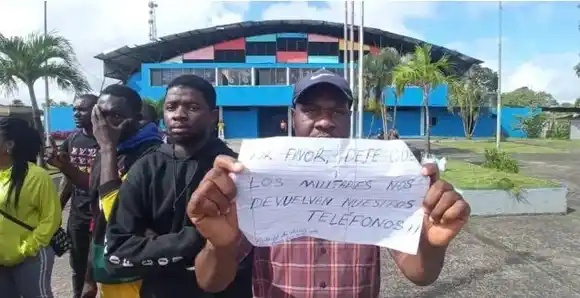 POR FAVOR, DEJE QUE
LOS MILITARES NOS
DEVUELVEN NUESTROS
TELÉFONOS!!